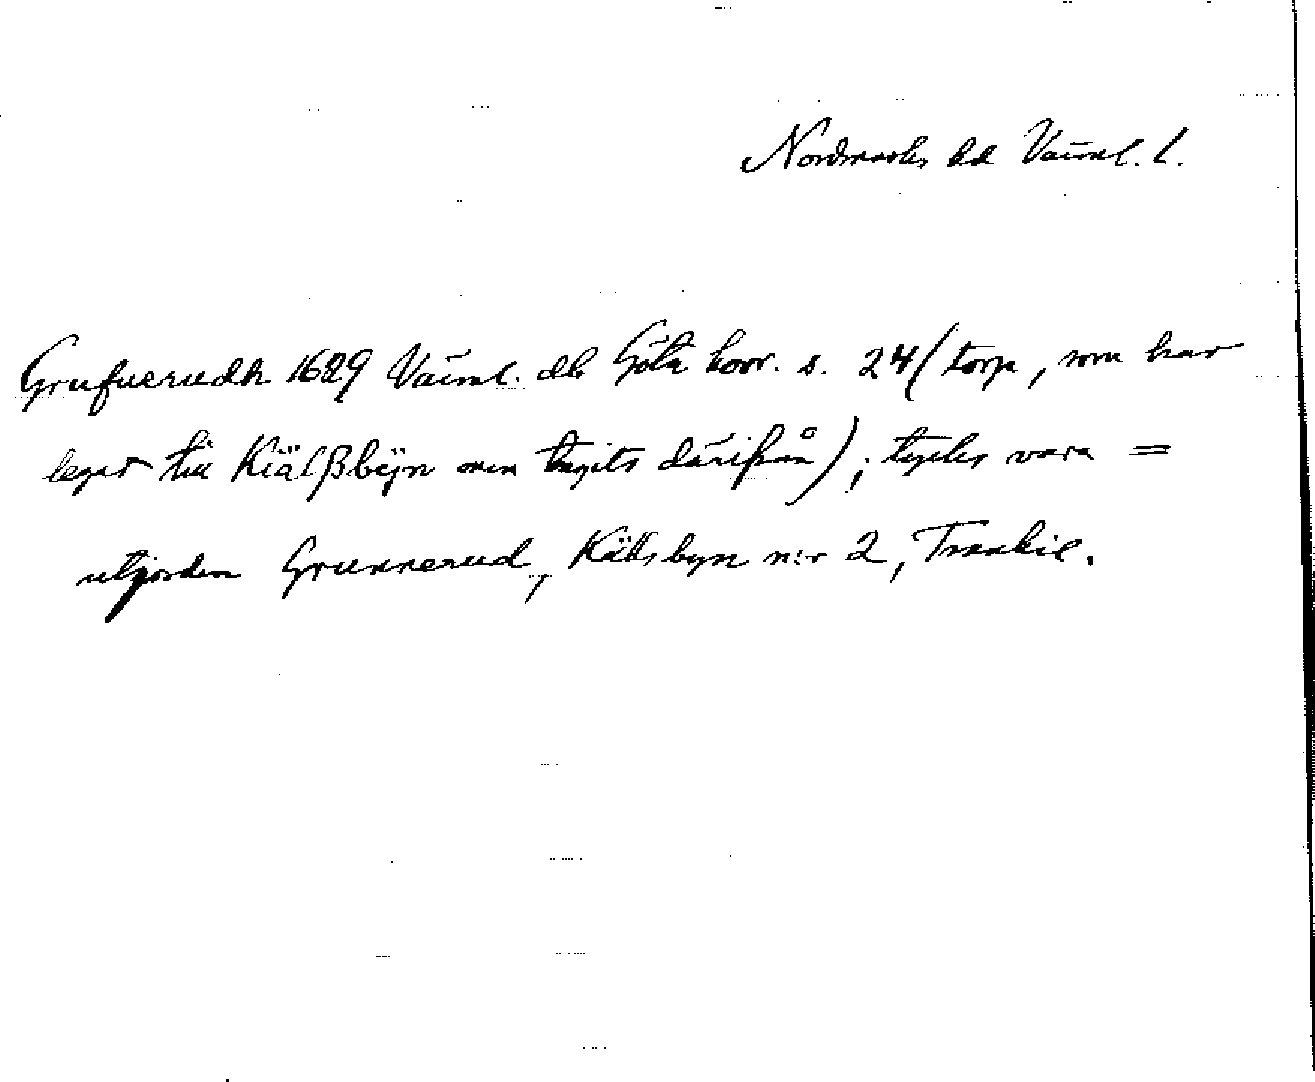 Nordmarks hd Värml. l.
Grufuerudh 1629 Värml. db Göta hovr. s. 24 (torp, som har
legat till Kiälßbÿn men tagits därifrån); tycks vara =
utjorden Grunnerud, Källsbyn n:r 2, Trankil.